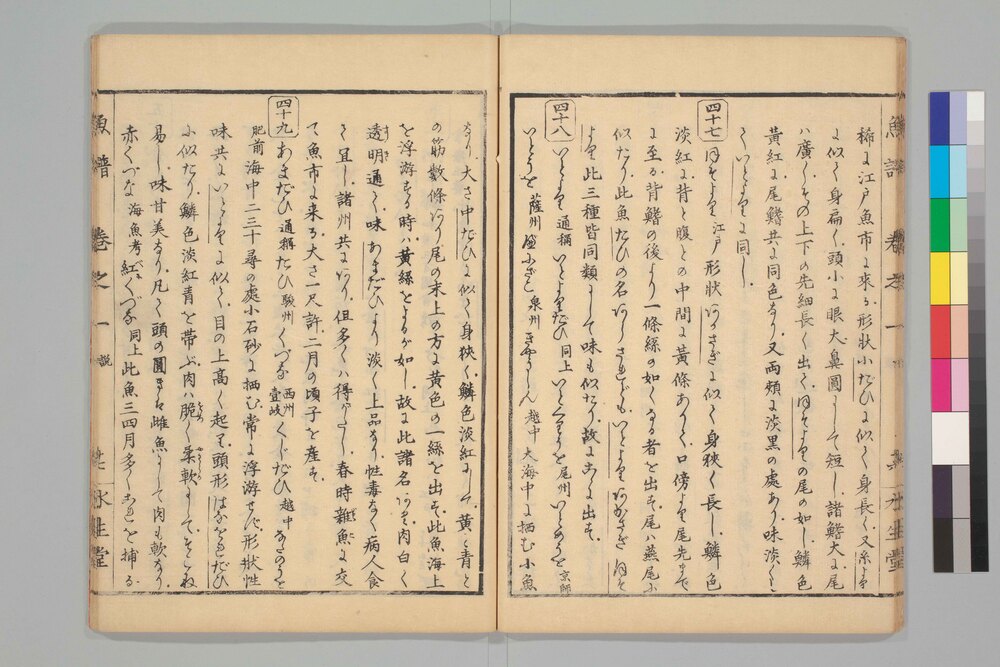 稀に江戸魚市に來る形状小だひに似て身長く又糸より
に似て身扁く頭小に眼大鼻圓にして短し諸鰭大に尾
ハ廣くその上下の先細長く出てほそよりの尾の如し鱗色
黄紅に尾鰭共に同色なり又両頬に淡黒の處あり味淡くし
ていとよりに同し
四十七
ほそより 江戸 形状あかさぎに似て身狭く長し鱗色
淡紅に背と腹との中間に黄條ありて口傍より尾先まで
に至る背鰭の後より一條絲の如くなる者を出す尾ハ燕尾に
似たり此魚たひの名ありされども いとより あかさぎ ほそ
より此三種皆同類にして味も似たり故にこゝに出す
四十八
いとより 通稱 いとよりだひ 同上 いとくりを 尾州 いとめうを 京師
いとうを 薩州
泉州
越中 大海中に栖む小魚
なり大さ中だひに似て身狭く鱗色淡紅にして黄と青と
の筋數條あり尾の末上の方に黄色の一絲を出す此魚海上
を浮游する時ハ黄絲をよるが如し故に此諸名あり肉白く
透明通して味あまだひより淡く上品なり性毒なく病人食
して宜し諸州共にあり但多くハ得がたし春時雜魚に交
て魚市に来る大さ一尺許二月の頃子を産す
四十九
あまだひ 通稱 おきつたひ 駿州 くづな 西州 壹岐 くじだひ 越中
肥前海中二三十尋の處小石砂に栖む常に浮游せず形状性
味共にいとよりに似て目の上高く起り頭形はなをれだひ
に似たり鱗色淡紅青を帯ぶ肉ハ脆く柔軟にしてそこね
易し味甘美なり凡て頭の圓きは雌魚にして肉も軟なり
赤くづな 海魚考 紅くづな 同上 此魚三四月多くこれを捕る
魚譜 卷之一 説
水生堂